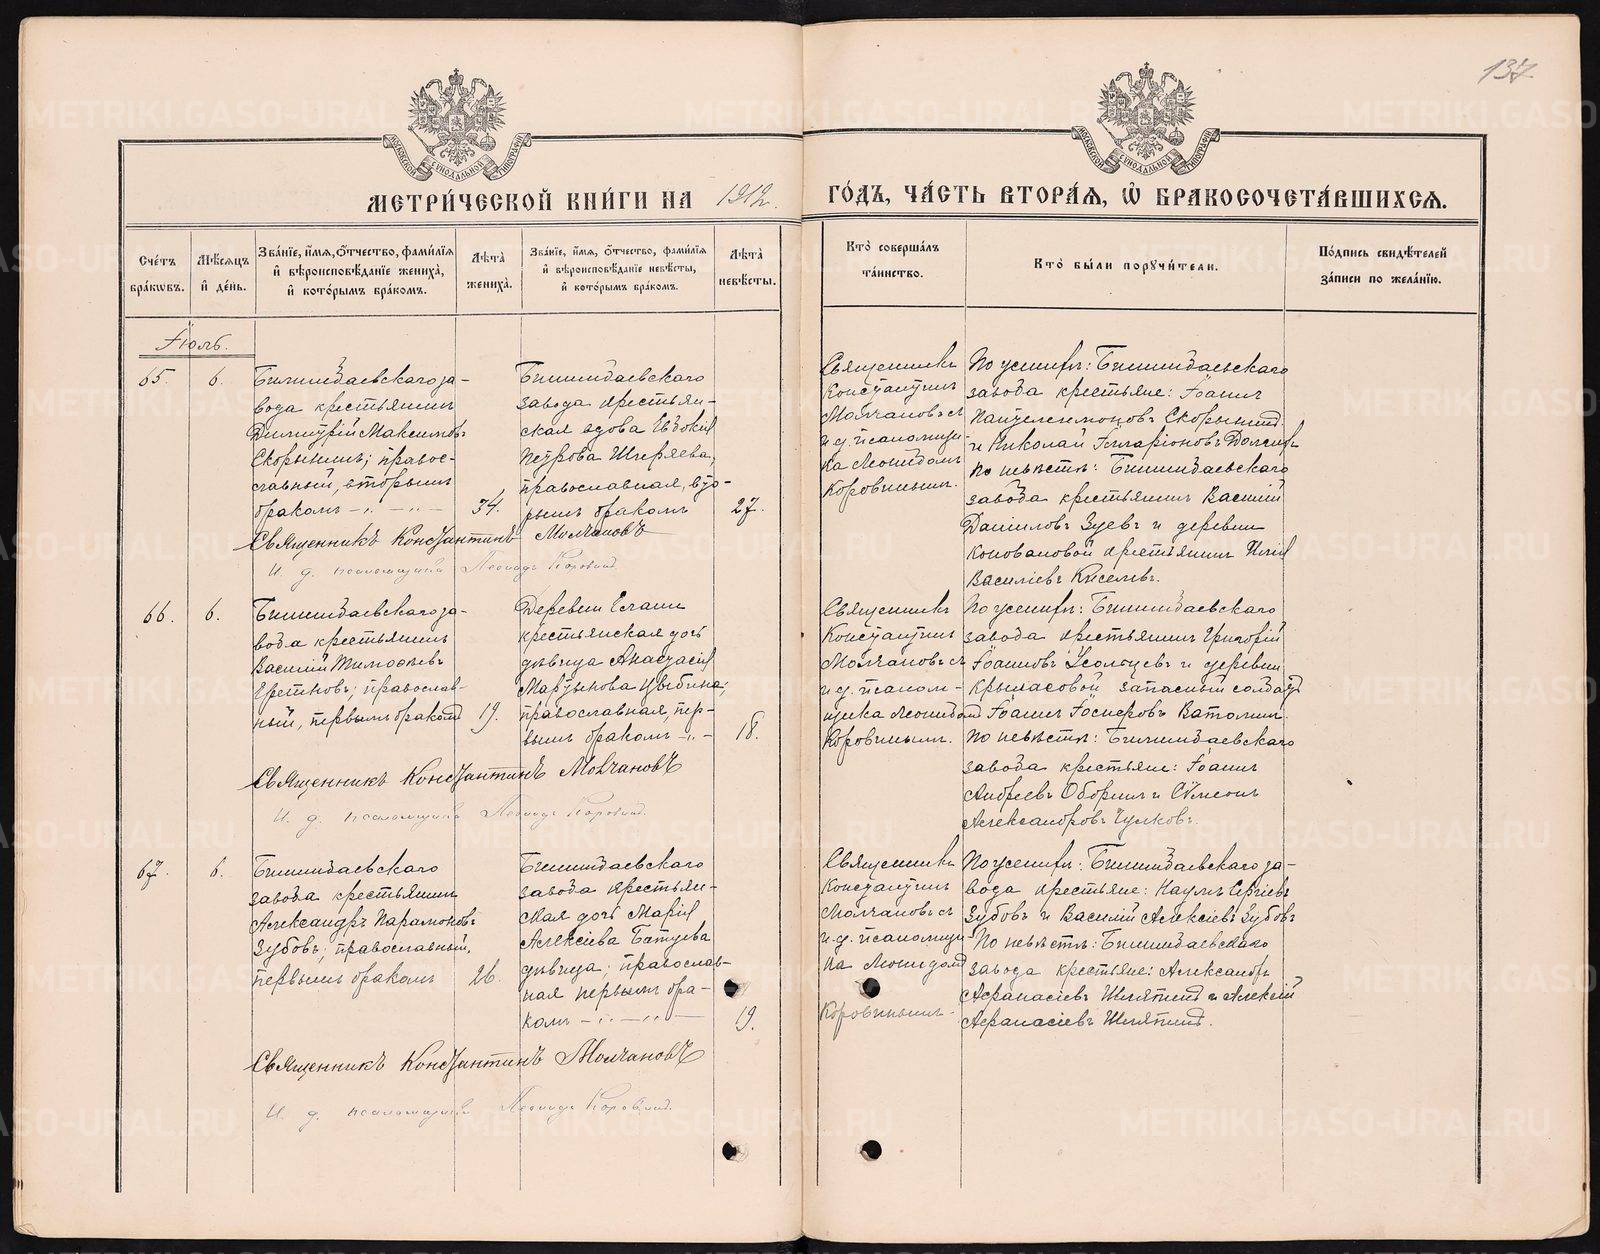 137.
МЕТРИ́ЧЕСКОЙ КНИ́ГИ НА 1912.
ГО́ДЪ, ЧА́СТЬ ВТОРА́Я, Ѡ҆ БРАКОСОЧЕТА́ВШИХСЯ.
Сче́тъ бра́ковъ.
Мѣ́сяцъ и҆ де́нь.
Зва́нїе, и҆́мя, ѻ҆́тчество, фами́лїя и҆ вѣроисповѣ́данїе жениха̀, и҆ кото́рымъ бра́комъ.
Лѣ́та жениха̀.
Зва́нїе, и҆́мя, ѻ҆́тчество, фами́лїя и҆ вѣроисповѣ́данїе невѣ́сты, и҆ кото́рымъ бра́комъ.
Лѣ́та невѣ́сты.
Кто̀ соверша́лъ та́инство.
Кто̀ бы́ли порꙋчи́тели.
По́дпись свидѣ́телей за́писи по жела́нїю.
Іюль.
65.
6.
Билимбаевскаго за-
вода крестьянинъ
Димитрій Максимовъ
Скорынинъ; правос-
лавный, вторымъ
бракомъ -„- -„-
34.
Билимбаевскаго
завода крестьян-
ская вдова Евдокія
Петрова Ширяева,
православная, вто-
рымъ бракомъ
27.
Священникъ
Константинъ
Молчановъ съ
и. д. псаломщи-
ка Леонидомъ
Коровинымъ.
По женихѣ: Билимбаевскаго
завода крестьяне: Іоаннъ
Пантелеимоновъ Скорынинъ
и Николай Иларіоновъ Долгихъ
По невѣстѣ: Билимбаевскаго
завода крестьянинъ Василій
Даниловъ Зуевъ и деревни
Коноваловой крестьянинъ Илія
Василіевъ Киселевъ.
Священникъ Константинъ Молчановъ
И. д. псаломщика Леонидъ Коровинъ
66.
6.
Билимбаевскаго за-
вода крестьянинъ
Василій Тимоѳеевъ
православ-
ный, первымъ бракомъ
19.
Деревни Елани
крестьянская дочь
дѣвица Анастасія
Мартынова
православная, пер-
вымъ бракомъ -„-
18.
Священникъ
Константинъ
Молчановъ съ
и. д. псалом-
щика Леонидомъ
Коровинымъ.
По женихѣ: Билимбаевскаго
завода крестьянинъ Григорій
Іоанновъ Усольцевъ и деревни
Крыласовой запасный солдатъ
Іоаннъ Ватолинъ.
По невѣстѣ: Билимбаевскаго
завода крестьяне: Іоаннъ
Андреевъ Оборинъ и Сѵмеонъ
Александровъ Чулковъ.
Священникъ Константинъ Молчановъ
И. д. псаломщика Леонидъ Коровинъ.
67.
6.
Билимбаевскаго
завода крестьянинъ
Александръ Парамоновъ
Зубовъ; православный,
первымъ бракомъ
26.
Билимбаевскаго
завода крестьян-
ская дочь Марія
Алексіева Батуева
дѣвица; православ-
ная первымъ бра-
комъ -„- -„-
19.
Священникъ
Константинъ
Молчановъ съ
и. д. псаломщи-
ка Леонидомъ
Коровинымъ.
По женихѣ: Билимбаевскаго за-
вода крестьяне: Наумъ Сергіевъ
Зубовъ и Василій Алексіевъ Зубовъ
По невѣстѣ: Билимбаевскаго
завода крестьяне: Александръ
Аѳанасіевъ Шляпинъ и Алексій
Аѳанасіевъ Шляпинъ.
Священникъ Константинъ Молчановъ
И. д. псаломщика Леонидъ Коровинъ.
METRIKI.GASO-URAL.RU